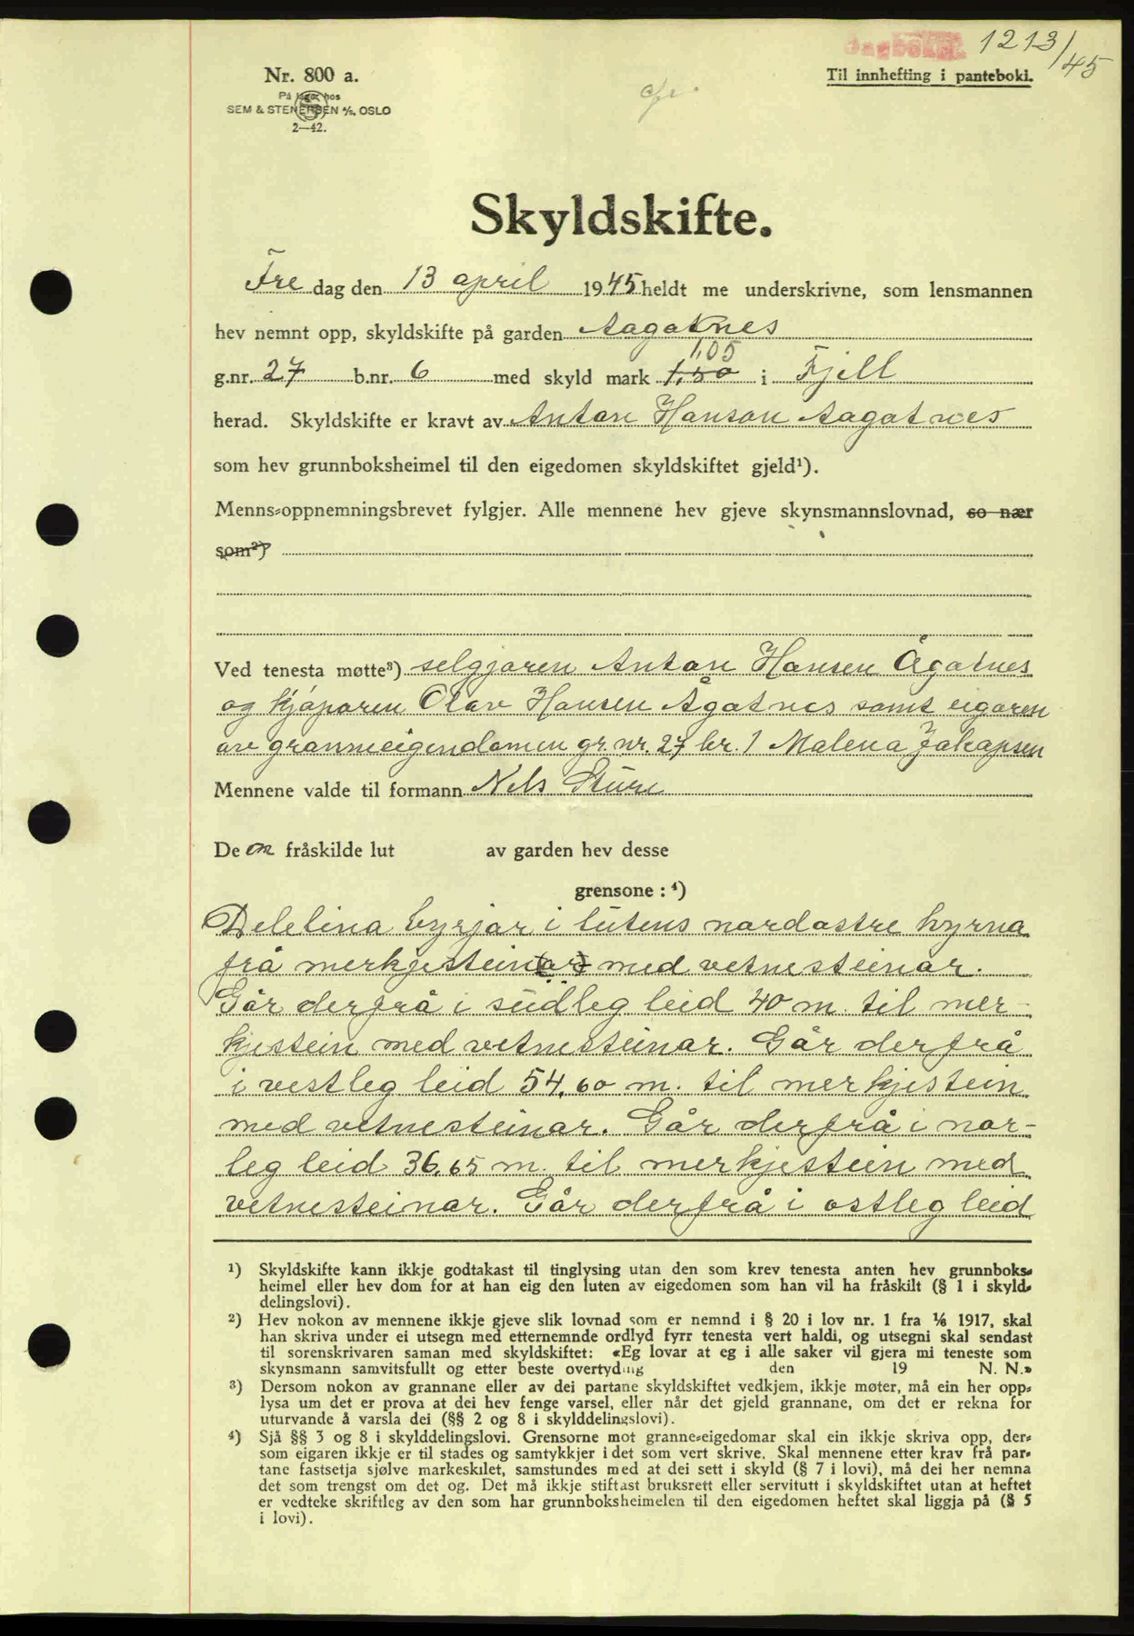 Dagboknr. 1213/45
Nr. 800 a.
Til innhefting i panteboki.
På lager hos
SEM & STENERSEN A/S, OSLO
2—42.
Skyldskifte.
Fre dag den 13 april 1945 heldt me underskrivne, som lensmannen
hev nemnt opp, skyldskifte på garden Aagatnes
1,05
g.nr. 27 b.nr. 6 med skyld mark 1,50 i Fjell
herad. Skyldskifte er kravt av Anton Hanson Aagatnes
som hev grunnboksheimel til den eigedomen skyldskiftet gjeld¹).
Menns-oppnemningsbrevet fylgjer. Alle mennene hev gjeve skynsmannslovnad, so nær
som²)
Ved tenesta møtte³) selgjaren Anton Hansen Ågatnes
og kjøparen Olav Hansen Ågatnes samt eigaren
av grannieigendomen gr.nr. 27 br. 1 Malena Jakopsen
Mennene valde til formann Nils Sture
De en fråskilde lut av garden hev desse
grensone : ⁴)
Delelina byrjar i lutens nordostre hyrna
frå merkjestein(ar) med vetnesteinar.
Går derfrå i südleg leid 40 m. til mer-
kjestein med vetnesteinar. Går derfrå
i vestleg leid 54,60 m. til merkjestein
med vetnesteinar. Går derfrå i nor-
leg leid 36,65 m. til merkjestein med
vetnesteinar. Går derfrå i ostleg leid
¹) Skyldskifte kann ikkje godtakast til tinglysing utan den som krev tenesta anten hev grunnboks-
heimel eller hev dom for at han eig den luten av eigedomen som han vil ha fråskilt (§ 1 i skyld-
delingslovi).
²) Hev nokon av mennene ikkje gjeve slik lovnad som er nemnd i § 20 i lov nr. 1 fra ⅙ 1917, skal
han skriva under ei utsegn med etternemnde ordlyd fyrr tenesta vert haldi, og utsegni skal sendast
til sorenskrivaren saman med skyldskiftet: «Eg lovar at eg i alle saker vil gjera mi teneste som
skynsmann samvitsfullt og etter beste overtyding den 19 N. N.»
³) Dersom nokon av grannane eller av dei partane skyldskiftet vedkjem, ikkje møter, må ein her opp-
lysa um det er prova at dei hev fenge varsel, eller når det gjeld grannane, om det er rekna for
uturvande å varsla dei (§§ 2 og 8 i skylddelingslovi).
⁴) Sjå §§ 3 og 8 i skylddelingslovi. Grensorne mot granne-eigedomar skal ein ikkje skriva opp, der-
som eigaren ikkje er til stades og samtykkjer i det som vert skrive. Skal mennene etter krav frå par-
tane fastsetja sjølve markeskilet, samstundes med at dei sett i skyld (§ 7 i lovi), må dei her nemna
det som trengst om det og. Det må ikkje stiftast bruksrett eller servitutt i skyldskiftet utan at heftet
er vedteke skriftleg av den som har grunnboksheimelen til den eigedomen heftet skal liggja på (§ 5
i lovi).